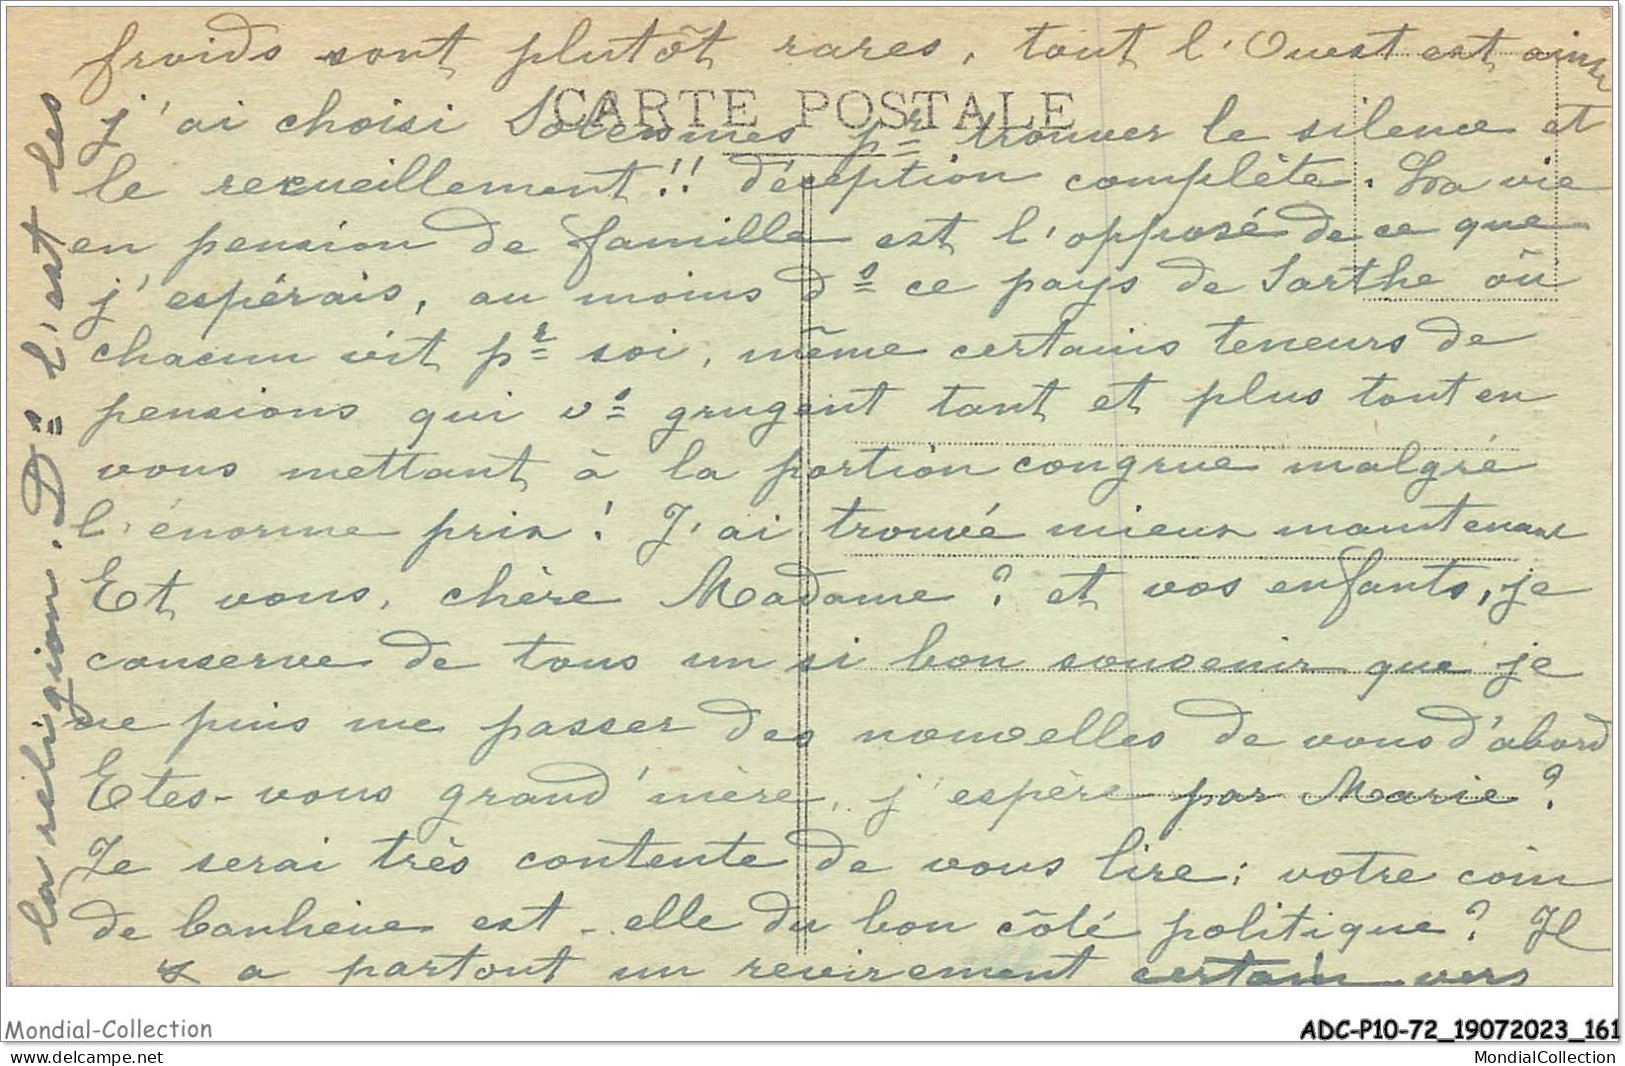 froids sont plutôt rares, tout l'Ouest est ainsi
CARTE POSTALE
j'ai choisi Solesmes pr trouver le silence et
le recueillement!! déception complète. La vie
en pension de famille est l'opposé de ce que
j'espérais, au moins ds ce pays de Sarthe où
chacun vit pr soi, même certains teneurs de
pensions qui vs grugent tant et plus tout en
vous mettant à la portion congrue malgré
l'énorme prix! J'ai trouvé mieux maintenant
Et vous, chère Madame? et vos enfants, je
conserve de tous un si bon souvenir que je
ne puis me passer des nouvelles de vous d'abord
Etes-vous grand'mère, j'espère par Marie?
Je serai très contente de vous lire; votre coin
de banlieue est-elle du bon côté politique? Il
y a partout un revirement certain vers
la religion. Ds l'est les
Mondial-Collection
ADC-P10-72_19072023_161
www.delcampe.net
MondialCollection